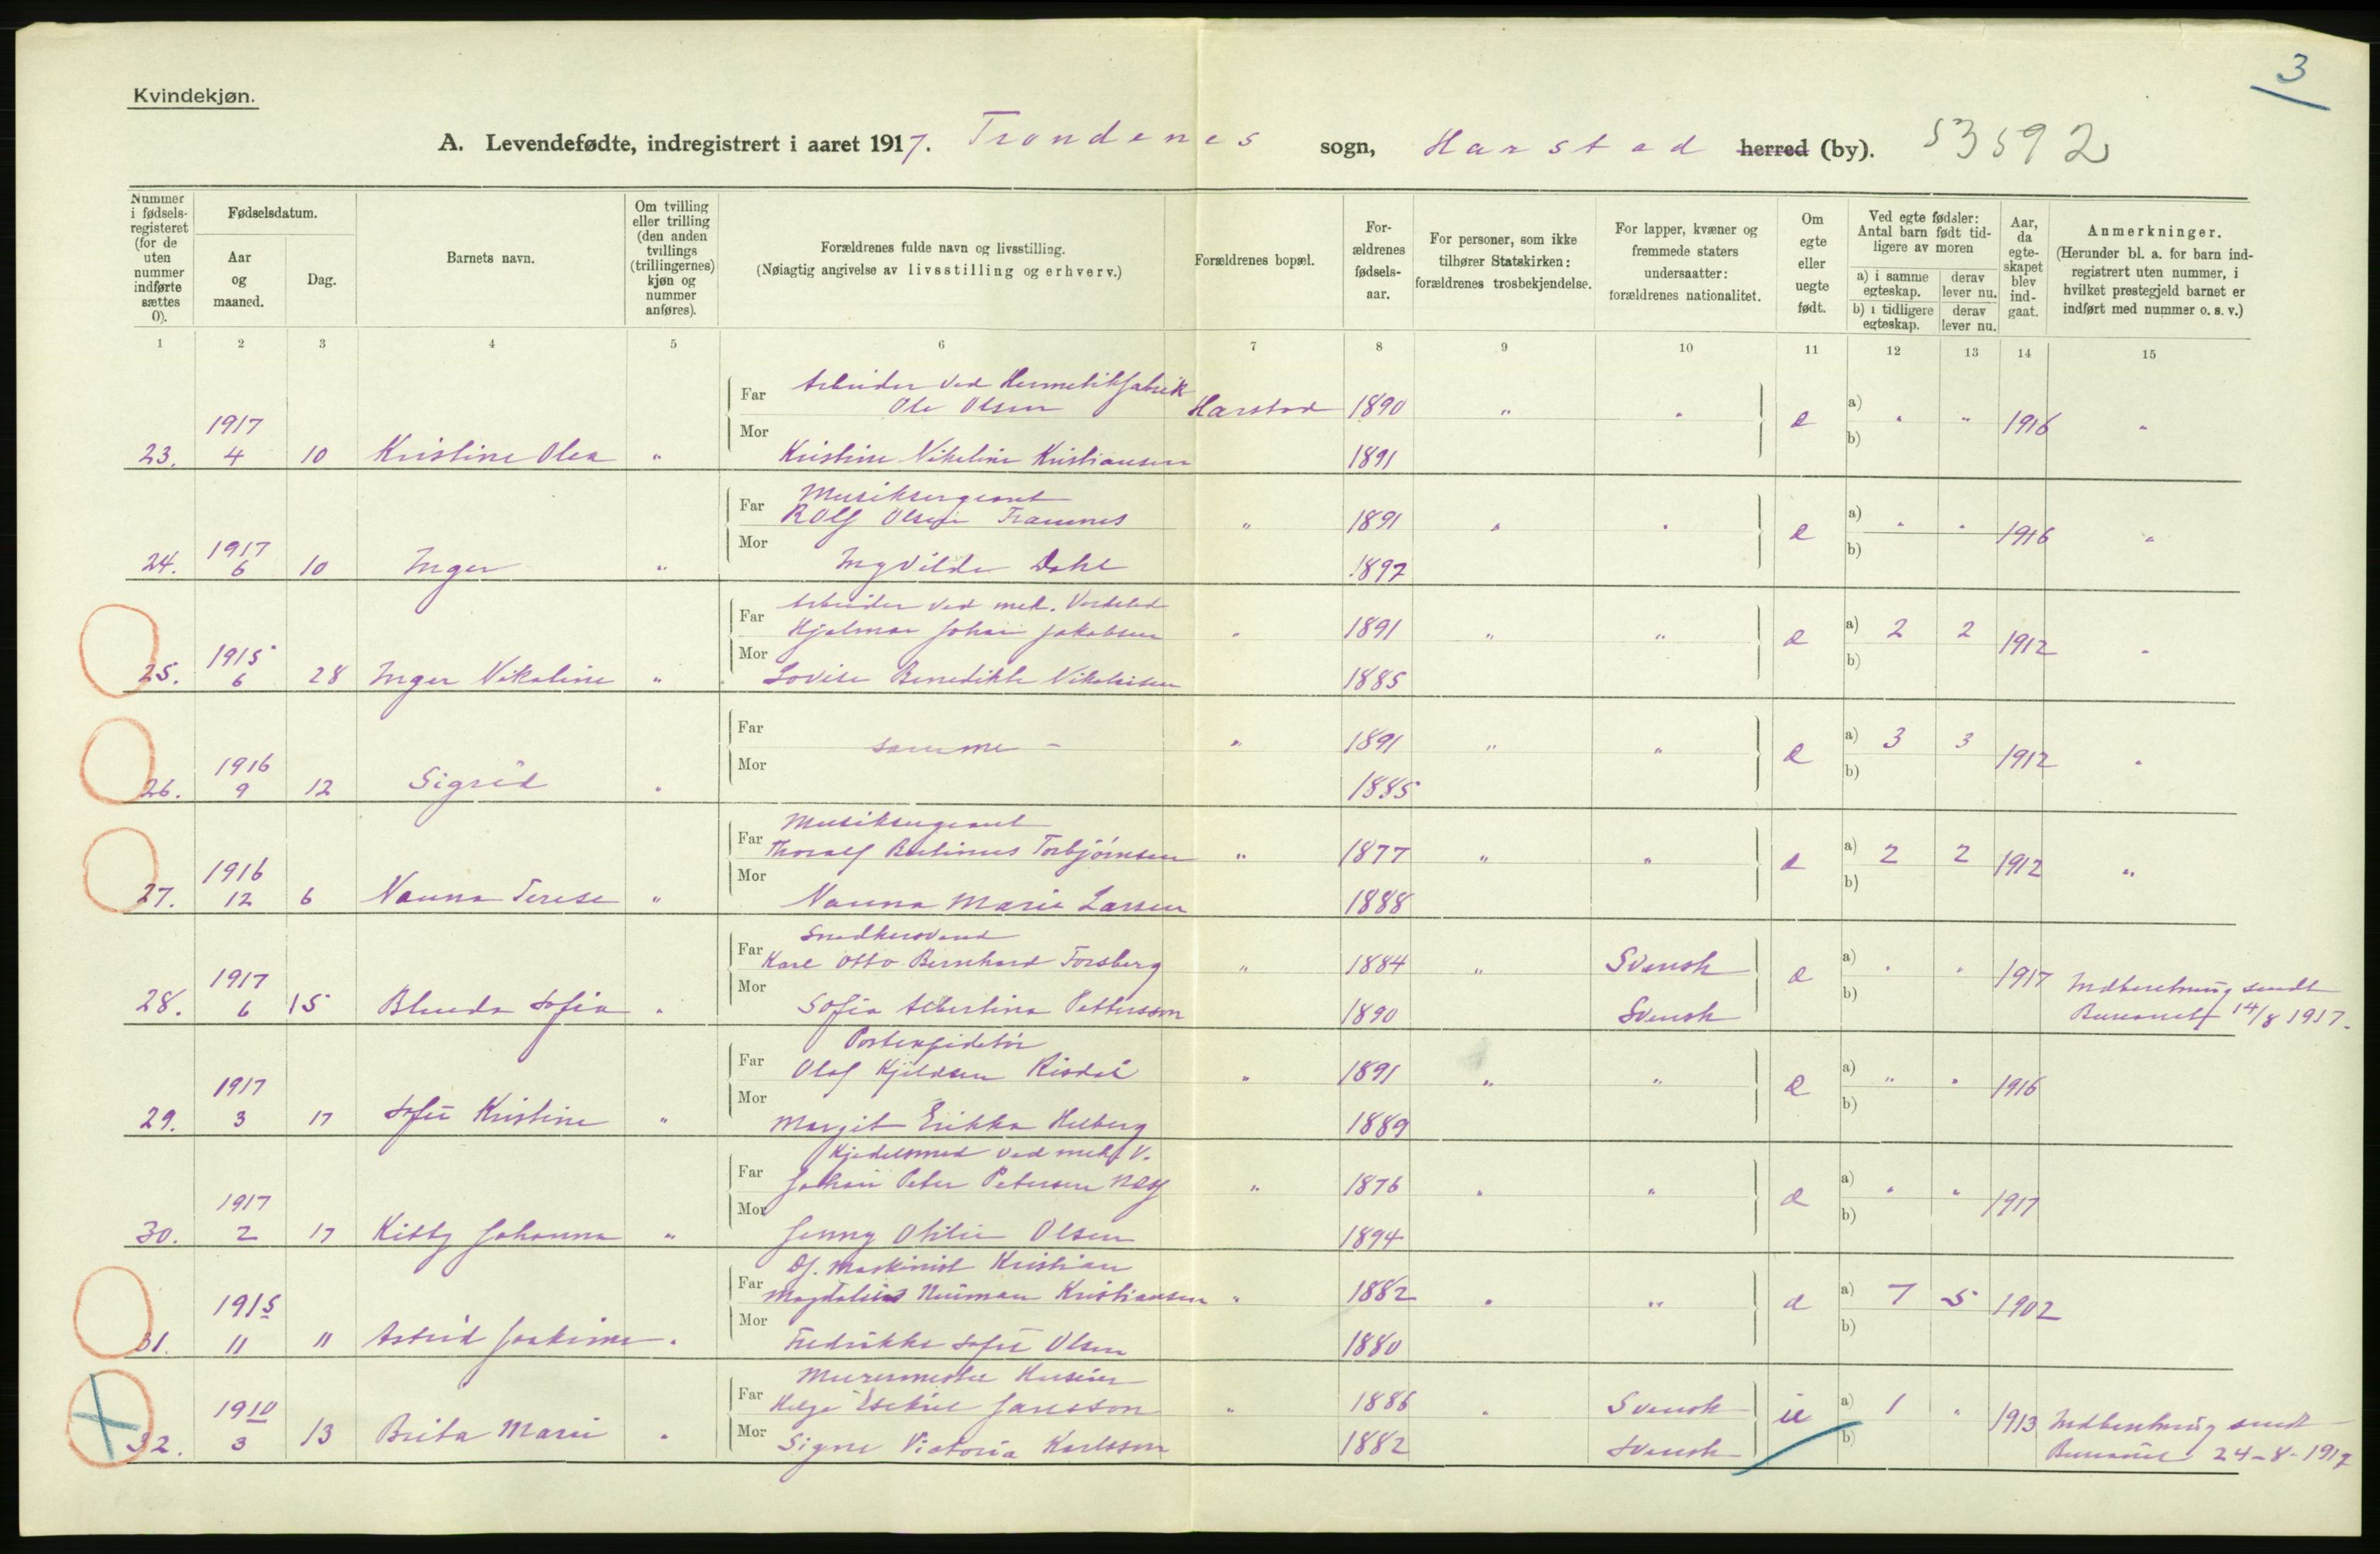 3
Kvindekjøn.
A. Levendefødte, indregistrert i aaret 1917. Trondenes sogn, Harstad herred (by). 53592
Nummer i fødsels-registeret (for de uten nummer indførte sættes 0).
Fødselsdatum.
Aar og maaned.
Dag.
Barnets navn.
Om tvilling eller trilling (den anden tvillings (trillingernes) kjøn og nummer anføres).
Forældrenes fulde navn og livsstilling.
(Nøiagtig angivelse av livsstilling og erhverv.)
Forældrenes bopæl.
For-ældrenes fødsels-aar.
For personer, som ikke tilhører Statskirken: forældrenes trosbekjendelse.
For lapper, kvæner og fremmede staters undersaatter: forældrenes nationalitet.
Om egte eller uegte født.
Ved egte fødsler: Antal barn født tid-ligere av moren
a) i samme egteskap. derav lever nu.
b) i tidligere egteskap. derav lever nu.
Aar, da egte-skapet blev ind-gaat.
Anmerkninger.
(Herunder bl. a. for barn ind-registrert uten nummer, i hvilket prestegjeld barnet er indført med nummer o. s. v.)
1 2 3 4 5 6 7 8 9 10 11 12 13 14 15
Far Arbeider ved Hermetikfabrik
Ole Olsen Harstad 1890 " " e a) " " 1916 "
23. 1917 4 10 Kristine Olea " Mor Kristine Nikoline Kristiansen 1891 b)
Far Musiksergeant
Rolf Olsen " 1891 " " e a) " " 1916 "
24. 1917 6 10 Inger " Mor Ingvilda Dahl 1897 b)
Far Arbeider ved mek. Verksted
Hjalmar Johan Jakobsen " 1891 " " e a) 2 2 1912 "
25. 1915 6 28 Inger Nikoline " Mor Lovise Benedikte Nikolaisen 1885 b)
Far samme - " 1891 " " e a) 3 3 1912 "
26. 1916 9 12 Sigrid " Mor 1885 b)
Far Musiksergeant
Thoralf Torbjørnsen " 1877 " " e a) 2 2 1912 "
27. 1916 12 6 Nanna Terese " Mor Nanna Marie Larsen 1888 b)
Far Snedkersvend
Karl Otto Bernhard Forsberg " 1884 " Svensk e a) " " 1917 Indberetning sendt
28. 1917 6 15 Blenda Sofia " Mor Sofia Albertina Pettersson 1890 Svensk b) Bureauet 14/8 1917.
Far Postexpeditør
Olaf Kjeldsen Risdal " 1891 " " e a) " " 1916
29. 1917 3 17 Sofie Kristine " Mor Margit Erikka Helberg 1889 b)
Far Kjedelsmed ved mek. V.
Johan Peter Petersen " 1876 " " e a) " " 1917
30. 1917 2 17 Kitty Johanna " Mor Jenny Otilie Olsen 1894 b)
Far Df. Maskinist Kristian
Magdalius Neuman Kristiansen " 1882 " " e a) 7 5 1902
31. 1915 11 11 Astrid Joakime " Mor Fredrikke Sofie Olsen 1880 b)
Far Murermester Huseier
Helge Esekiel " 1886 " Svensk ue a) 1 " 1913 Indberetning sendt
32. 1910 3 13 Brita Marie " Mor Signe Victoria Karlsson 1882 Svensk b) Bureauet 24-8-1917